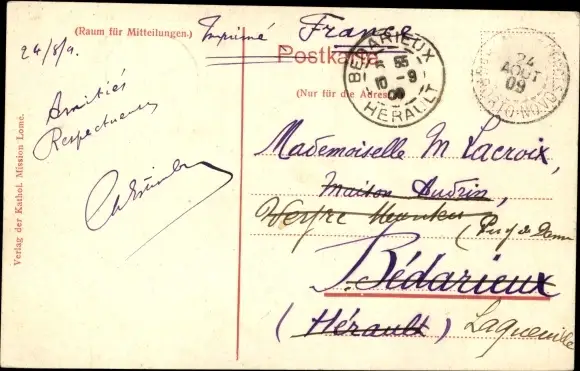 (Raum für Mitteilungen.)
Imprimé France
24/8/9.
Postkarte
(Nur für die Adresse)
BEDARIEUX
55
10 - 9
09
HERAULT
24
AOUT
09
PORTO-NOVO
Amitiés
Respectueuses
Mademoiselle M Lacroix,
Maison Audrin,
(Puy de Dome
Bédarieux
(Hérault) Laqueuille
Verlag der Kathol. Mission Lomé.